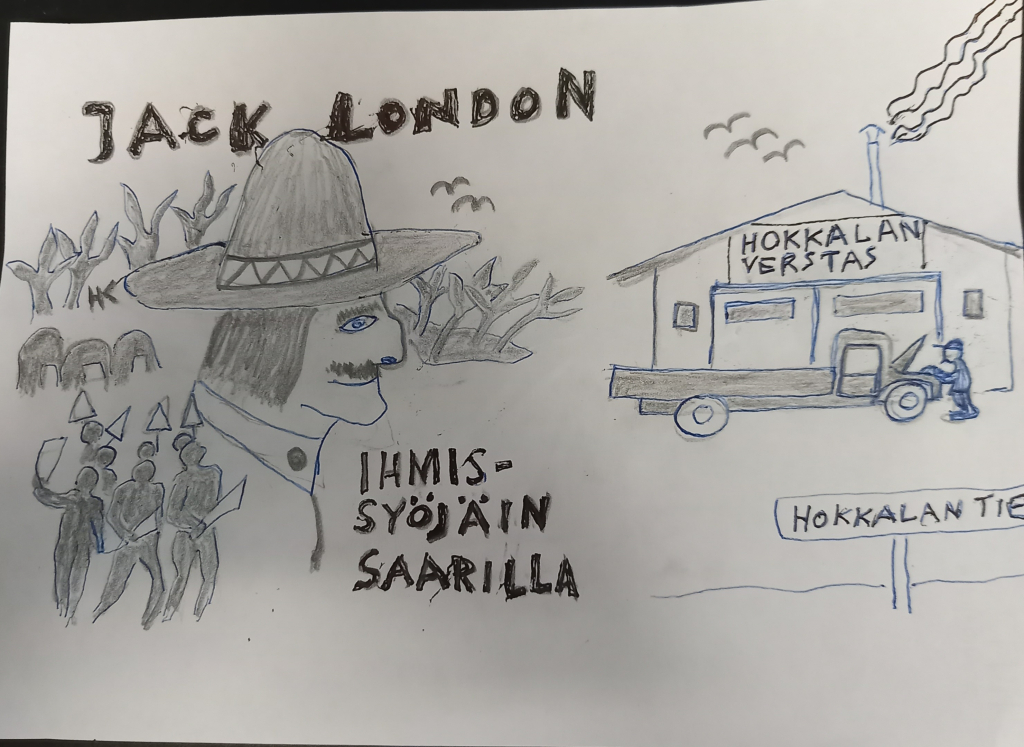 JACK LONDON
HK
IHMIS-
SYÖJÄIN
SAARILLA
HOKKALAN
VERSTAS
HOKKALAN TIE